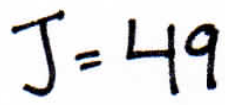 J = 49